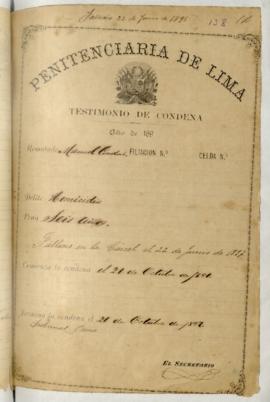 Falleció 22 de Junio de 1895
138
PENITENCIARIA DE LIMA
TESTIMONIO DE CONDENA
Año de 189
Rematado Manuel FILIACION N.º CELDA N.º
Delito Homicidio
Pena Seis años.
Falleció en la Carcel el 22 de Junio de 189
Comienza la condena el 20 de Octubre de 189
Termina la condena el 20 de Octubre de 189
Tribunal
EL SECRETARIO